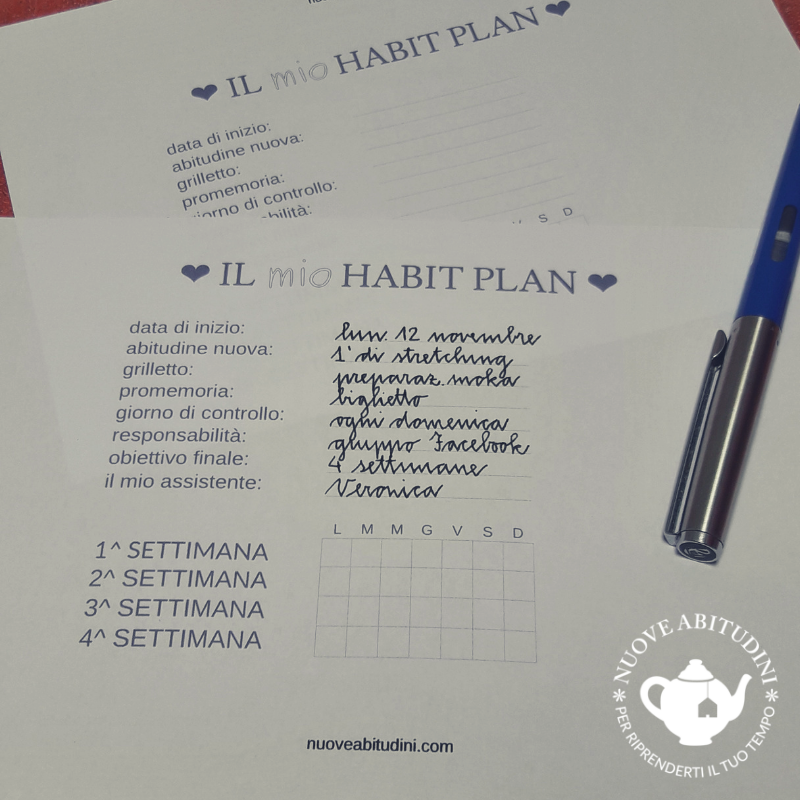 ❤ IL mio HABIT PLAN ❤
data di inizio:
abitudine nuova:
grilletto:
promemoria:
giorno di controllo:
V S D
❤ IL mio HABIT PLAN ❤
data di inizio: lun. 12 novembre
abitudine nuova: 1' di stretching
grilletto: preparaz. moka
promemoria: biglietto
giorno di controllo: ogni domenica
responsabilità: gruppo Facebook
obiettivo finale: 4 settimane
il mio assistente: Veronica
L M M G V S D
1^ SETTIMANA
2^ SETTIMANA
3^ SETTIMANA
4^ SETTIMANA
nuoveabitudini.com
* NUOVE ABITUDINI *
PER RIPRENDERTI IL TUO TEMPO